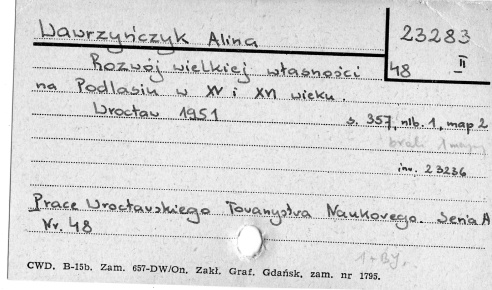 Wawrzyńczyk Alina
23283
II
48
Rozwój wielkiej własności
na Podlasiu w XV i XVI wieku.
Wrocław 1951
s. 357, nlb. 1, map 2
brak 1 mapy
inw. 23236
Prace Wrocławskiego Towarzystwa Naukowego. Seria A
Nr. 48
1+BY.
CWD. B-15b. Zam. 657-DW/On. Zakł. Graf. Gdańsk. zam. nr 1795.